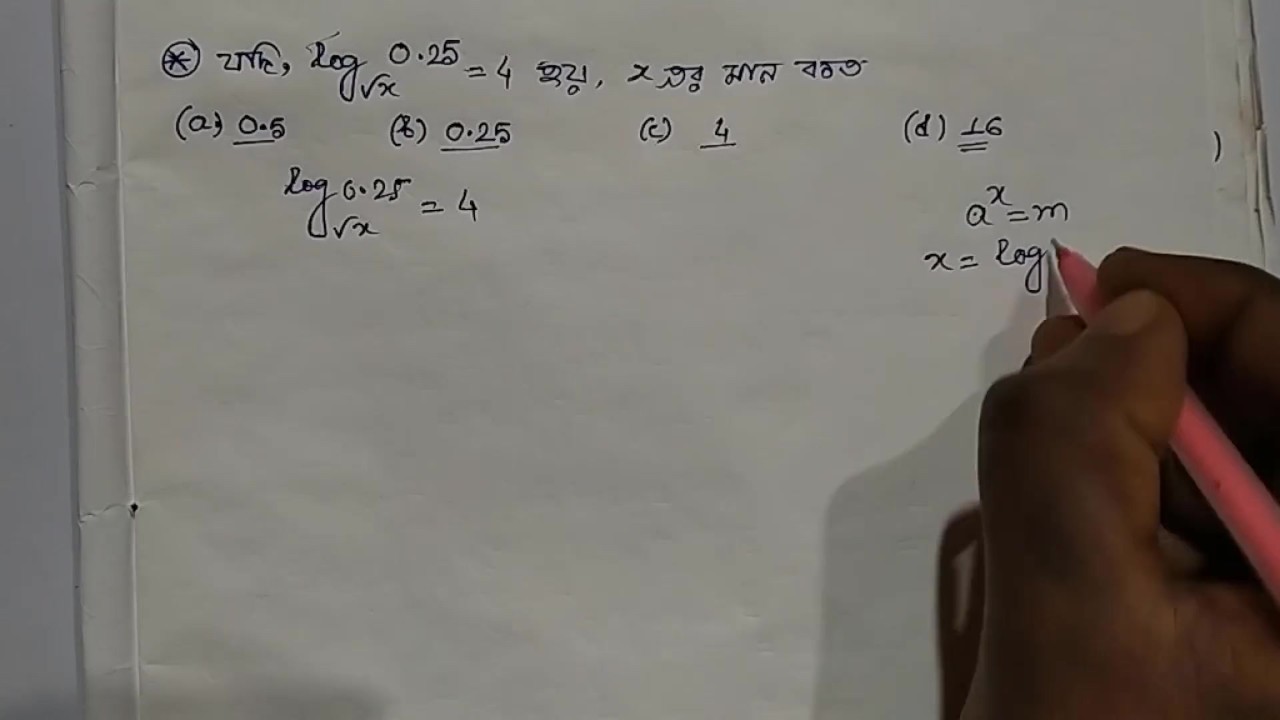 ⊛ যদি, log√x 0.25 = 4 হয়, x এর মান কত
(a) 0.5 (b) 0.25 (c) 4 (d) 16
)
log√x 0.25 = 4
aˣ = m
x = log